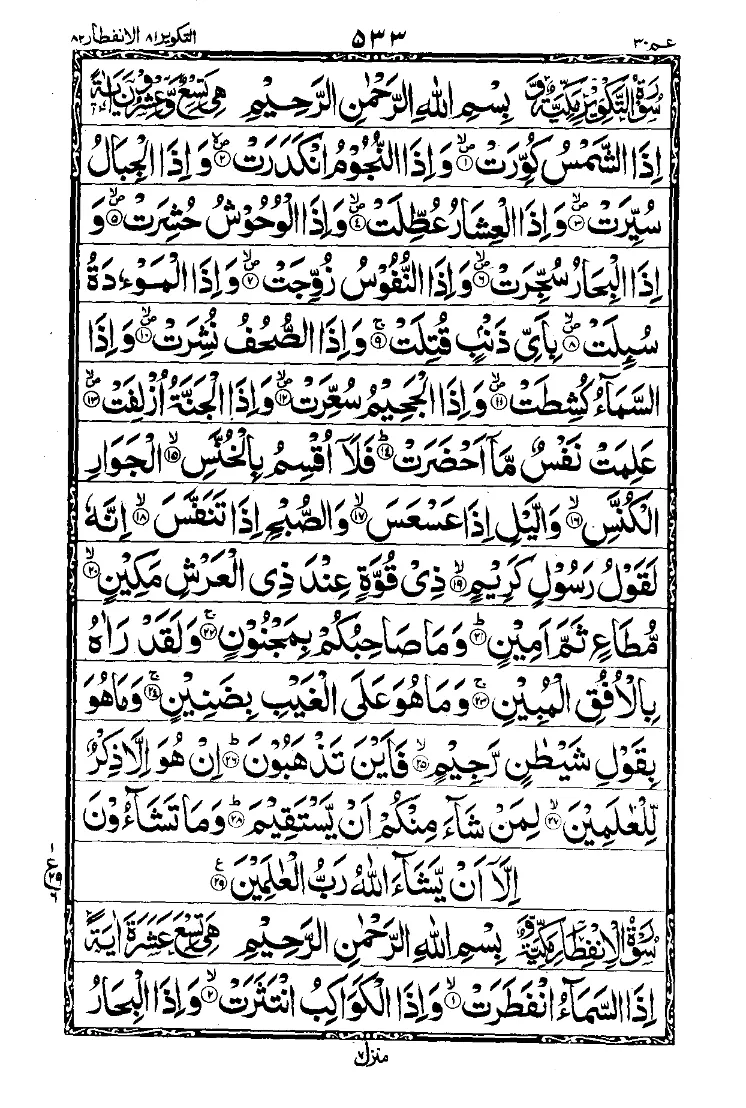 عـم ٣٠ ٥٣٣ التكوير ٨١ الانفطار ٨٢
سُوْرَةُ التَّكْوِيْرِ مَكِّيَّةٌ وَّ بِسْمِ اللهِ الرَّحْمٰنِ الرَّحِيْمِ هِىَ تِسْعٌ وَّعِشْرُوْنَ اٰيَةً
اِذَا الشَّمْسُ كُوِّرَتْ ۪ۙ﴿۱﴾ وَاِذَا النُّجُوْمُ انْكَدَرَتْ ۪ۙ﴿۲﴾ وَاِذَا الْجِبَالُ
سُيِّرَتْ ۪ۙ﴿۳﴾ وَاِذَا الْعِشَارُ عُطِّلَتْ ۪ۙ﴿۴﴾ وَاِذَا الْوُحُوْشُ حُشِرَتْ ۪ۙ﴿۵﴾ وَ
اِذَا الْبِحَارُ سُجِّرَتْ ۪ۙ﴿۶﴾ وَاِذَا النُّفُوْسُ زُوِّجَتْ ۪ۙ﴿۷﴾ وَاِذَا الْمَوْءٗدَةُ
سُىِٕلَتْ ۪ۙ﴿۸﴾ بِاَىِّ ذَنْۢبٍ قُتِلَتْ ۚ﴿۹﴾ وَاِذَا الصُّحُفُ نُشِرَتْ ۪ۙ﴿۱۰﴾ وَاِذَا
السَّمَآءُ كُشِطَتْ ۪ۙ﴿۱۱﴾ وَاِذَا الْجَحِيْمُ سُعِّرَتْ ۪ۙ﴿۱۲﴾ وَاِذَا الْجَنَّةُ اُزْلِفَتْ ۪ۙ﴿۱۳﴾
عَلِمَتْ نَفْسٌ مَّاۤ اَحْضَرَتْ ؕ﴿۱۴﴾ فَلَاۤ اُقْسِمُ بِالْخُنَّسِ ۙ﴿۱۵﴾ الْجَوَارِ
الْكُنَّسِ ۙ﴿۱۶﴾ وَالَّيْلِ اِذَا عَسْعَسَ ۙ﴿۱۷﴾ وَالصُّبْحِ اِذَا تَنَفَّسَ ۙ﴿۱۸﴾ اِنَّهٗ
لَقَوْلُ رَسُوْلٍ كَرِيْمٍ ۙ﴿۱۹﴾ ذِىْ قُوَّةٍ عِنْدَ ذِى الْعَرْشِ مَكِيْنٍ ۙ﴿۲۰﴾
مُّطَاعٍ ثَمَّ اَمِيْنٍ ؕ﴿۲۱﴾ وَمَا صَاحِبُكُمْ بِمَجْنُوْنٍ ۚ﴿۲۲﴾ وَلَقَدْ رَاٰهُ
بِالْاُفُقِ الْمُبِيْنِ ۚ﴿۲۳﴾ وَمَا هُوَ عَلَى الْغَيْبِ بِضَنِيْنٍ ۚ﴿۲۴﴾ وَمَا هُوَ
بِقَوْلِ شَيْطٰنٍ رَّجِيْمٍ ۙ﴿۲۵﴾ فَاَيْنَ تَذْهَبُوْنَ ؕ﴿۲۶﴾ اِنْ هُوَ اِلَّا ذِكْرٌ
لِّلْعٰلَمِيْنَ ۙ﴿۲۷﴾ لِمَنْ شَآءَ مِنْكُمْ اَنْ يَّسْتَقِيْمَ ؕ﴿۲۸﴾ وَمَا تَشَآءُوْنَ
اِلَّاۤ اَنْ يَّشَآءَ اللهُ رَبُّ الْعٰلَمِيْنَ ﴿۲۹﴾ع
سُوْرَةُ الْاِنْفِطَارِ مَكِّيَّةٌ وَّ بِسْمِ اللهِ الرَّحْمٰنِ الرَّحِيْمِ هِىَ تِسْعَ عَشَرَةَ اٰيَةً
اِذَا السَّمَآءُ انْفَطَرَتْ ۙ﴿۱﴾ وَاِذَا الْكَوَاكِبُ انْتَثَرَتْ ۙ﴿۲﴾ وَاِذَا الْبِحَارُ
منزل ٧